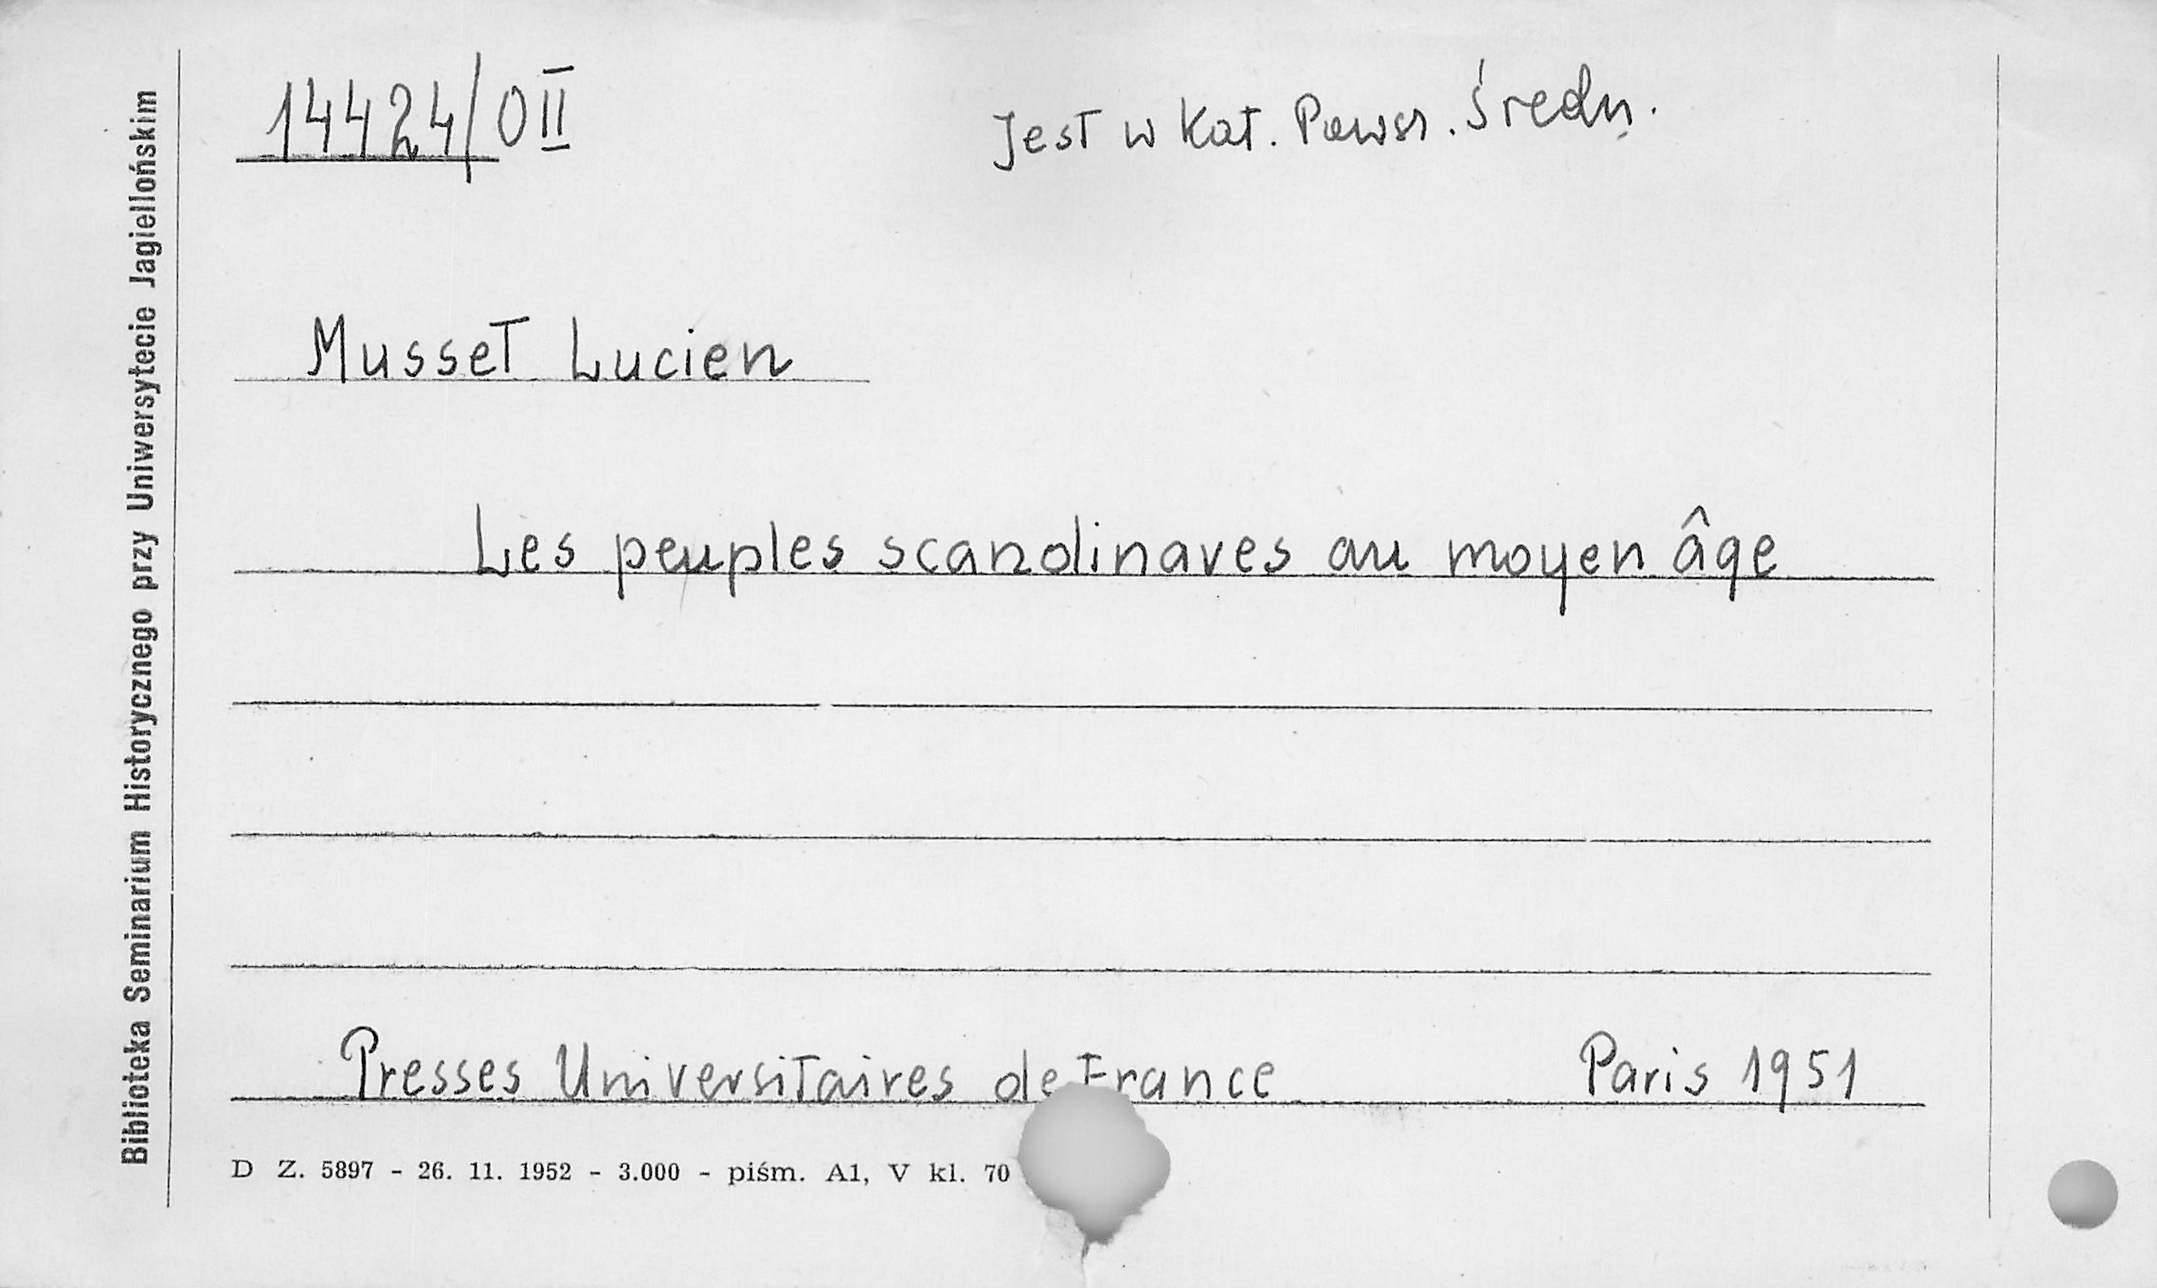 14424/0 II
Jest w Kat. Powsz. Średn.
Musset Lucien
Les peuples scandinaves au moyen âge
Presses Universitaires de France Paris 1951
D Z. 5897 - 26. 11. 1952 - 3.000 - piśm. A1, V kl. 70
Biblioteka Seminarium Historycznego przy Uniwersytecie Jagiellońskim